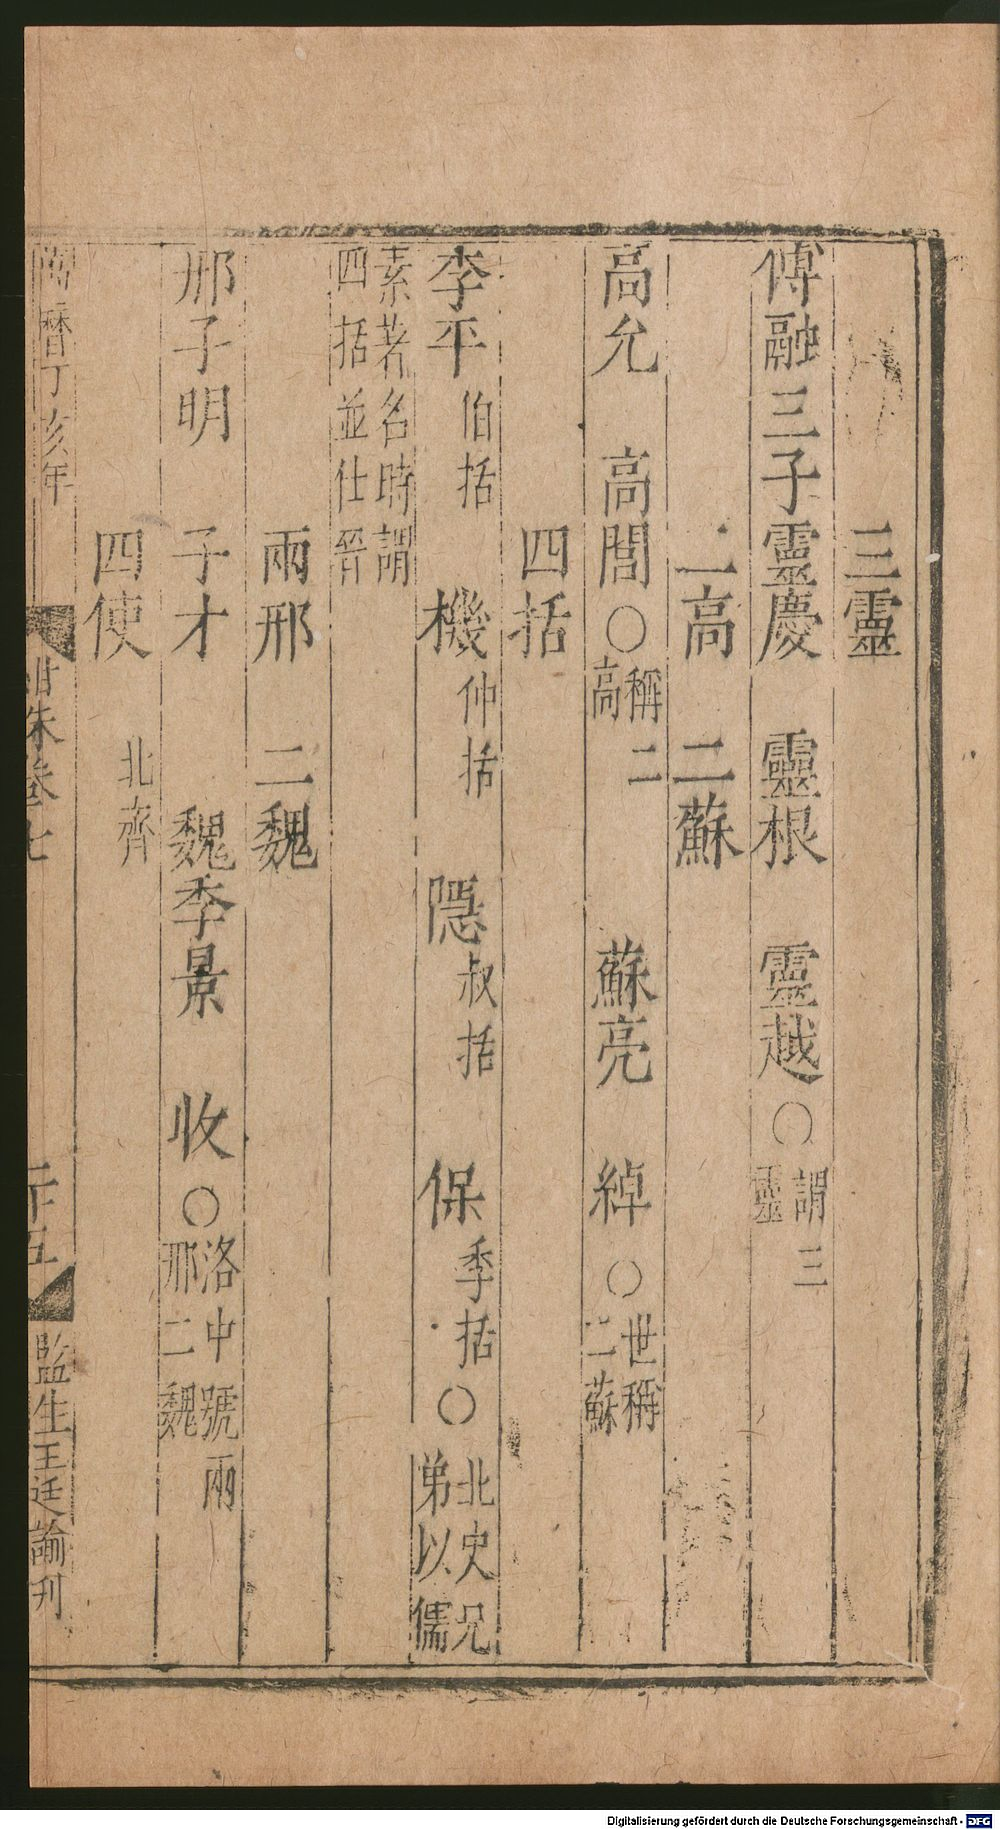 三靈
傅融三子靈慶 靈根 靈越○謂三靈
二高 二蘇
高允 高閭○稱二高 蘇亮 綽○世稱二蘇
四括
李平伯括 機仲括 隱叔括 保季括○北史兄弟以儒
素著名時謂四括並仕晉
兩邢 二魏
邢子明 子才 魏季景 收○洛中號兩邢二魏
四使北齊
萬曆丁亥年 紺珠卷七 二十五 監生王廷諭刊
Digitalisierung gefördert durch die Deutsche Forschungsgemeinschaft - DFG